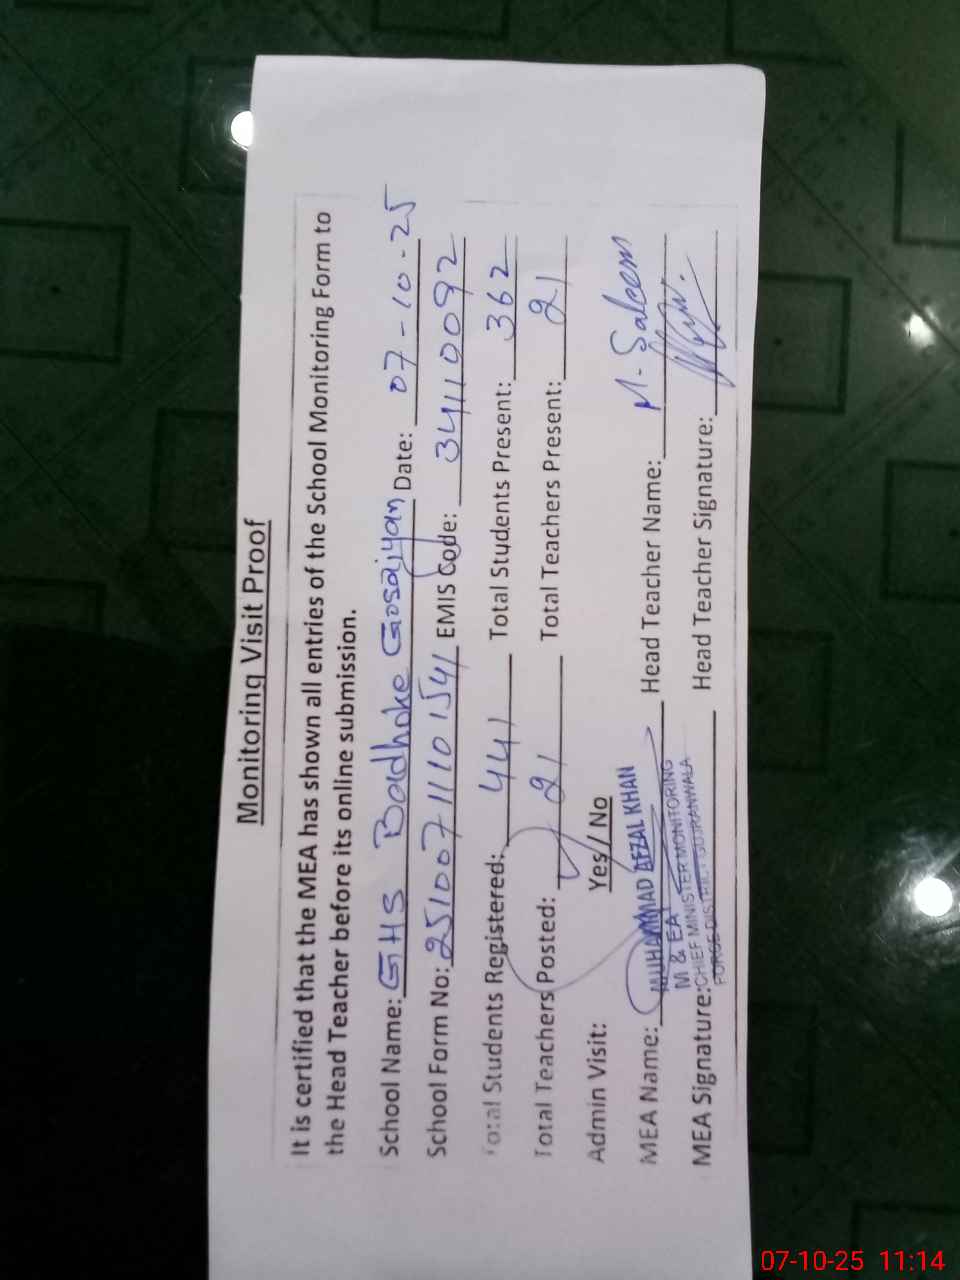 Monitoring Visit Proof
It is certified that the MEA has shown all entries of the School Monitoring Form to
the Head Teacher before its online submission.
School Name: GHS Badhoke Gosaiyan Date: 07-10-25
School Form No: 25100711101541 EMIS Code: 34110092
Total Students Registered: 441 Total Students Present: 362
Total Teachers Posted: 21 Total Teachers Present: 21
Admin Visit: Yes/ No
MEA Name: MUHAMMAD AFZAL KHAN Head Teacher Name: M. Saleem
M & EA
MEA Signature: CHIEF MINISTER MONITORING Head Teacher Signature:
FORCE DISTRICT GUJRANWALA
07-10-25 11:14